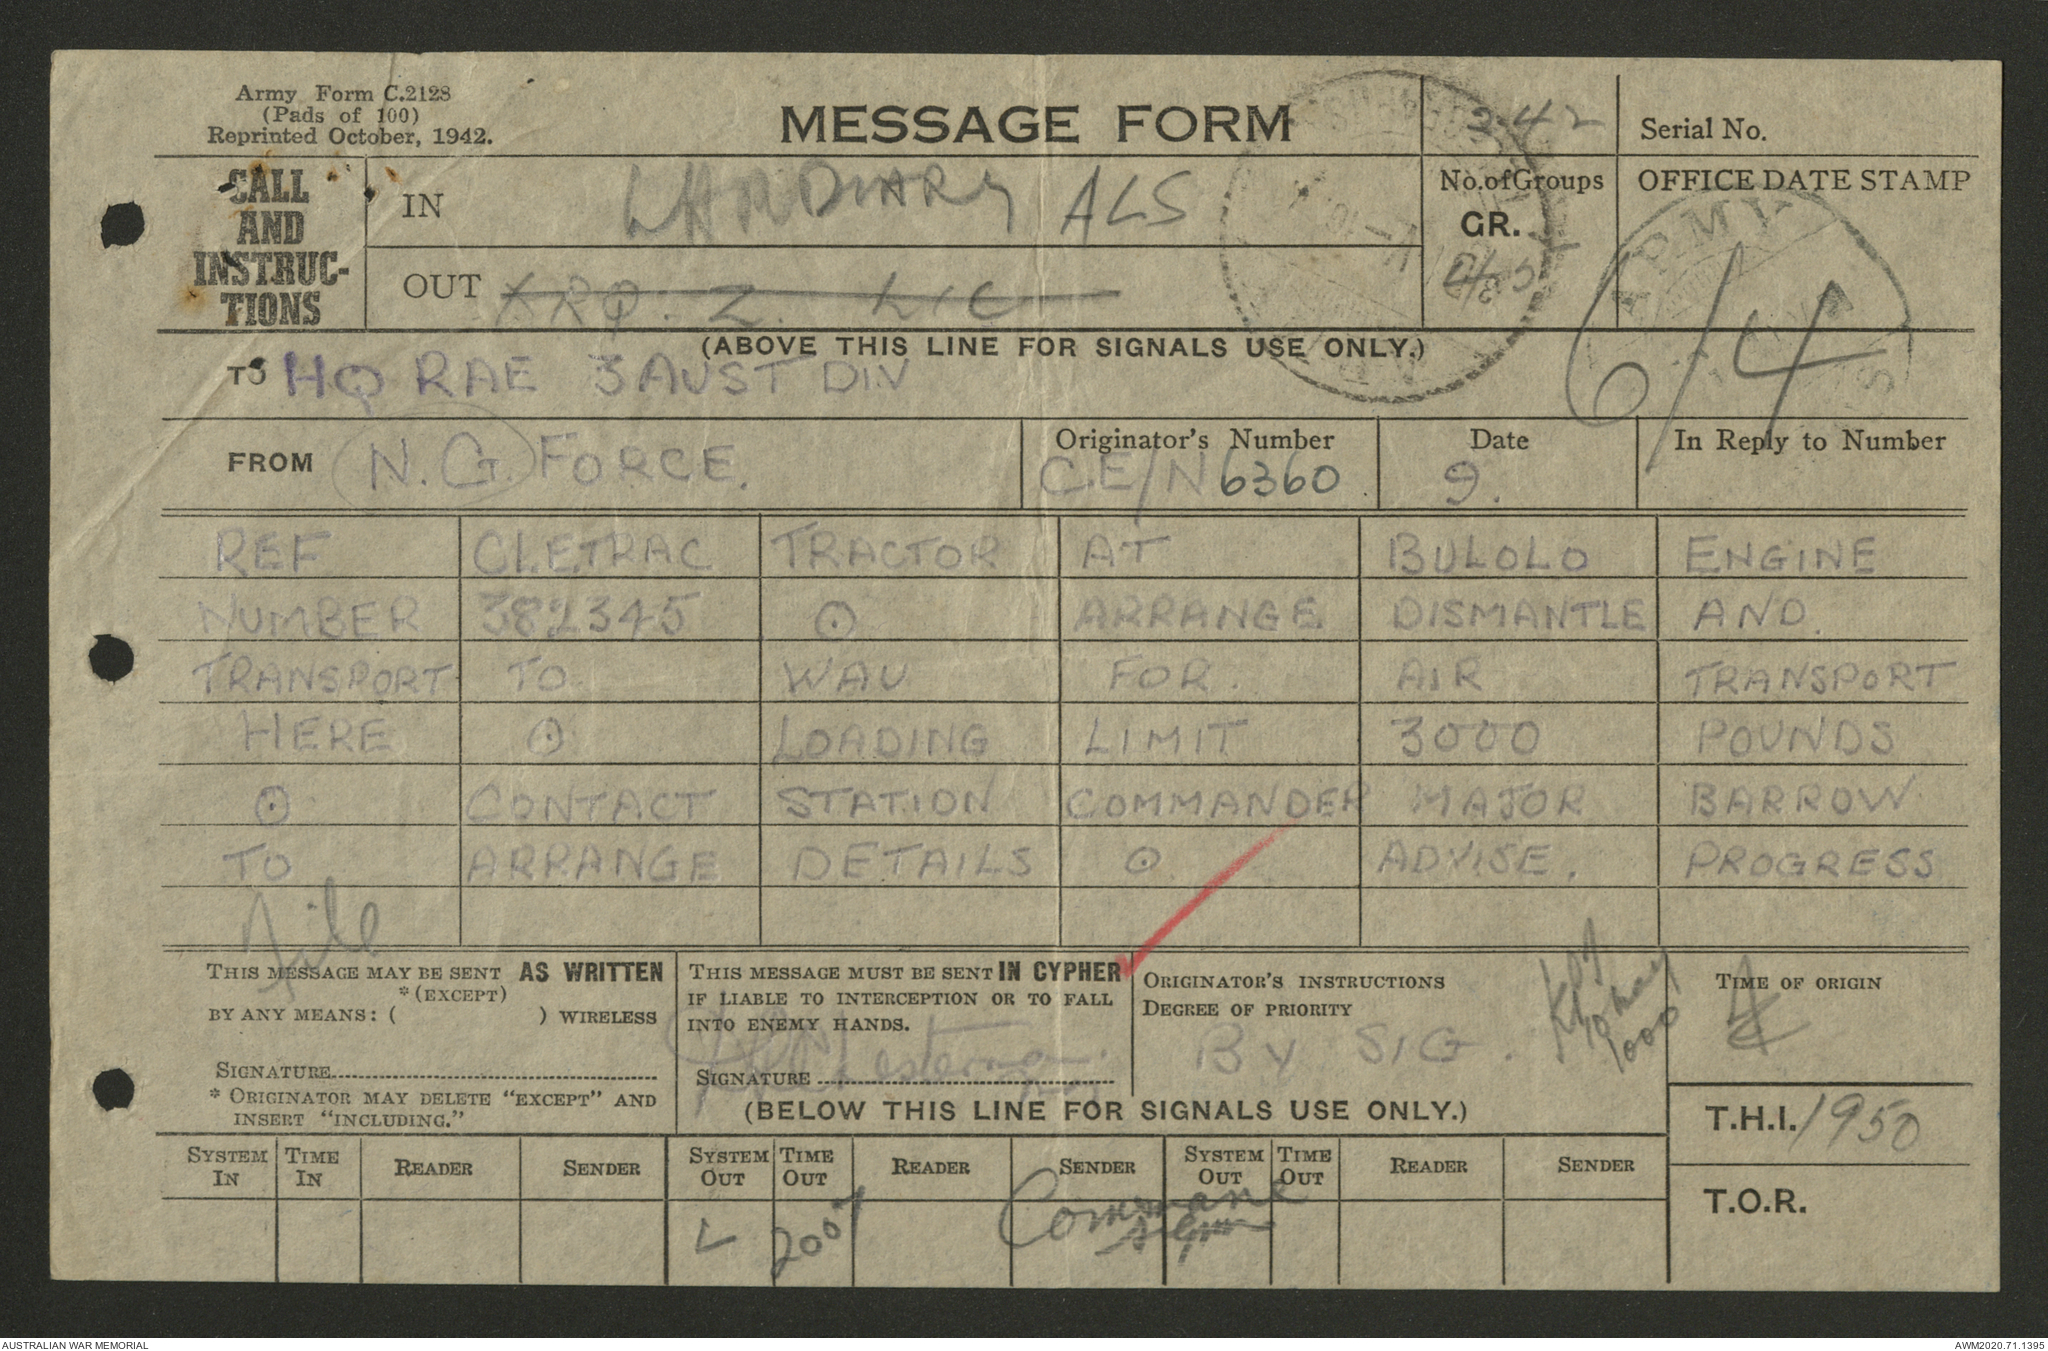 Army Form C.2128
(Pads of 100)
Reprinted October, 1942.
MESSAGE FORM
242
Serial No.
CALL
AND
INSTRUC-
TIONS
IN
ALS
No. of Groups
GR.
OFFICE DATE STAMP
ARMY
OUT
XRQ. Z. LIC
6/4
(ABOVE THIS LINE FOR SIGNALS USE ONLY.)
TO HQ RAE 3 AUST DIV
FROM N.G. FORCE.
Originator's Number
CE/N 6360
Date
9.
In Reply to Number
REF CLETRAC TRACTOR AT BULOLO ENGINE
NUMBER 382345 ⊙ ARRANGE DISMANTLE AND
TRANSPORT TO WAU FOR AIR TRANSPORT
HERE ⊙ LOADING LIMIT 3000 POUNDS
⊙ CONTACT STATION COMMANDER MAJOR BARROW
TO ARRANGE DETAILS ⊙ ADVISE. PROGRESS
File
THIS MESSAGE MAY BE SENT AS WRITTEN
*(EXCEPT)
BY ANY MEANS: ( ) WIRELESS
SIGNATURE
* ORIGINATOR MAY DELETE "EXCEPT" AND
INSERT "INCLUDING."
THIS MESSAGE MUST BE SENT IN CYPHER
IF LIABLE TO INTERCEPTION OR TO FALL
INTO ENEMY HANDS.
SIGNATURE
ORIGINATOR'S INSTRUCTIONS
DEGREE OF PRIORITY
BY SIG.
1000
TIME OF ORIGIN
(BELOW THIS LINE FOR SIGNALS USE ONLY.)
T.H.I. 1950
T.O.R.
SYSTEM IN
TIME IN
READER
SENDER
SYSTEM OUT
TIME OUT
READER
SENDER
SYSTEM OUT
TIME OUT
READER
SENDER
L
2007
AUSTRALIAN WAR MEMORIAL
AWM2020.71.1395